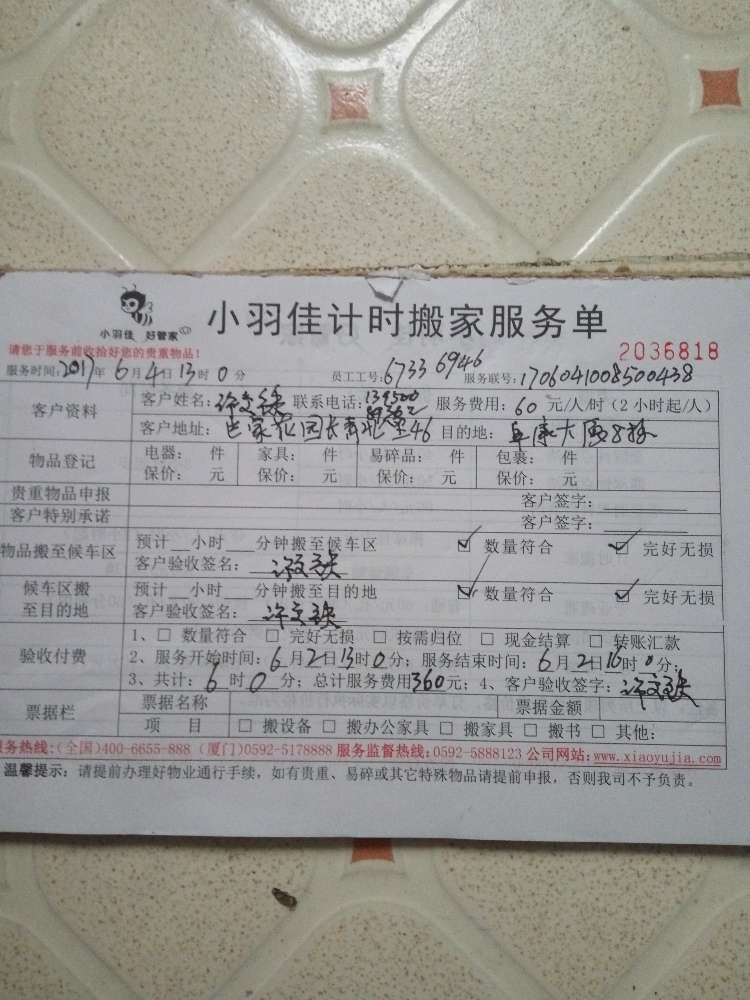 小羽佳 好管家
小羽佳计时搬家服务单
请您于服务前收拾好您的贵重物品！
2036818
服务时间：2017年6月4日13时0分 员工工号：6733 6946 服务联号：1706041008500438
客户资料
客户姓名： 联系电话： 服务费用：60元/人/时（2小时起/人）
客户地址： 目的地：
物品登记
电器： 件 家具： 件 易碎品： 件 包裹： 件
保价： 元 保价： 元 保价： 元 保价： 元
贵重物品申报 客户签字：
客户特别承诺 客户签字：
物品搬至候车区
预计__小时__分钟搬至候车区 ☑ 数量符合 ☑ 完好无损
客户验收签名：
候车区搬至目的地
预计__小时__分钟搬至目的地 ☑ 数量符合 ☑ 完好无损
客户验收签名：
验收付费
1、□ 数量符合 □ 完好无损 □ 按需归位 □ 现金结算 □ 转账汇款
2、服务开始时间：6月2日13时0分；服务结束时间：6月2日16时0分；
3、共计：6时0分；总计服务费用360元；4、客户验收签字：
票据栏
票据名称 票据金额
项 目 □ 搬设备 □ 搬办公家具 □ 搬家具 □ 搬书 □ 其他：
服务热线：(全国)400-6655-888 (厦门)0592-5178888 服务监督热线：0592-5888123 公司网站：www.xiaoyujia.com
温馨提示：请提前办理好物业通行手续，如有贵重、易碎或其它特殊物品请提前申报，否则我司不予负责。